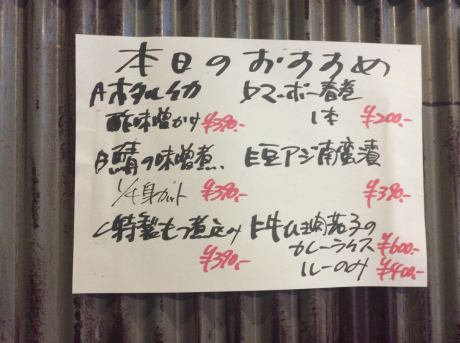 本日のおすすめ
Aホタルイカ
酢味噌かけ ¥390.-
B鯖の味噌煮
1/4身カット ¥390.-
C特製もつ煮込み
¥390.-
Dマーボー春巻
1本 ¥200.-
E豆アジ南蛮漬
¥380.-
F牛すじ茄子の
カレーライス ¥600.-
ルーのみ ¥400.-